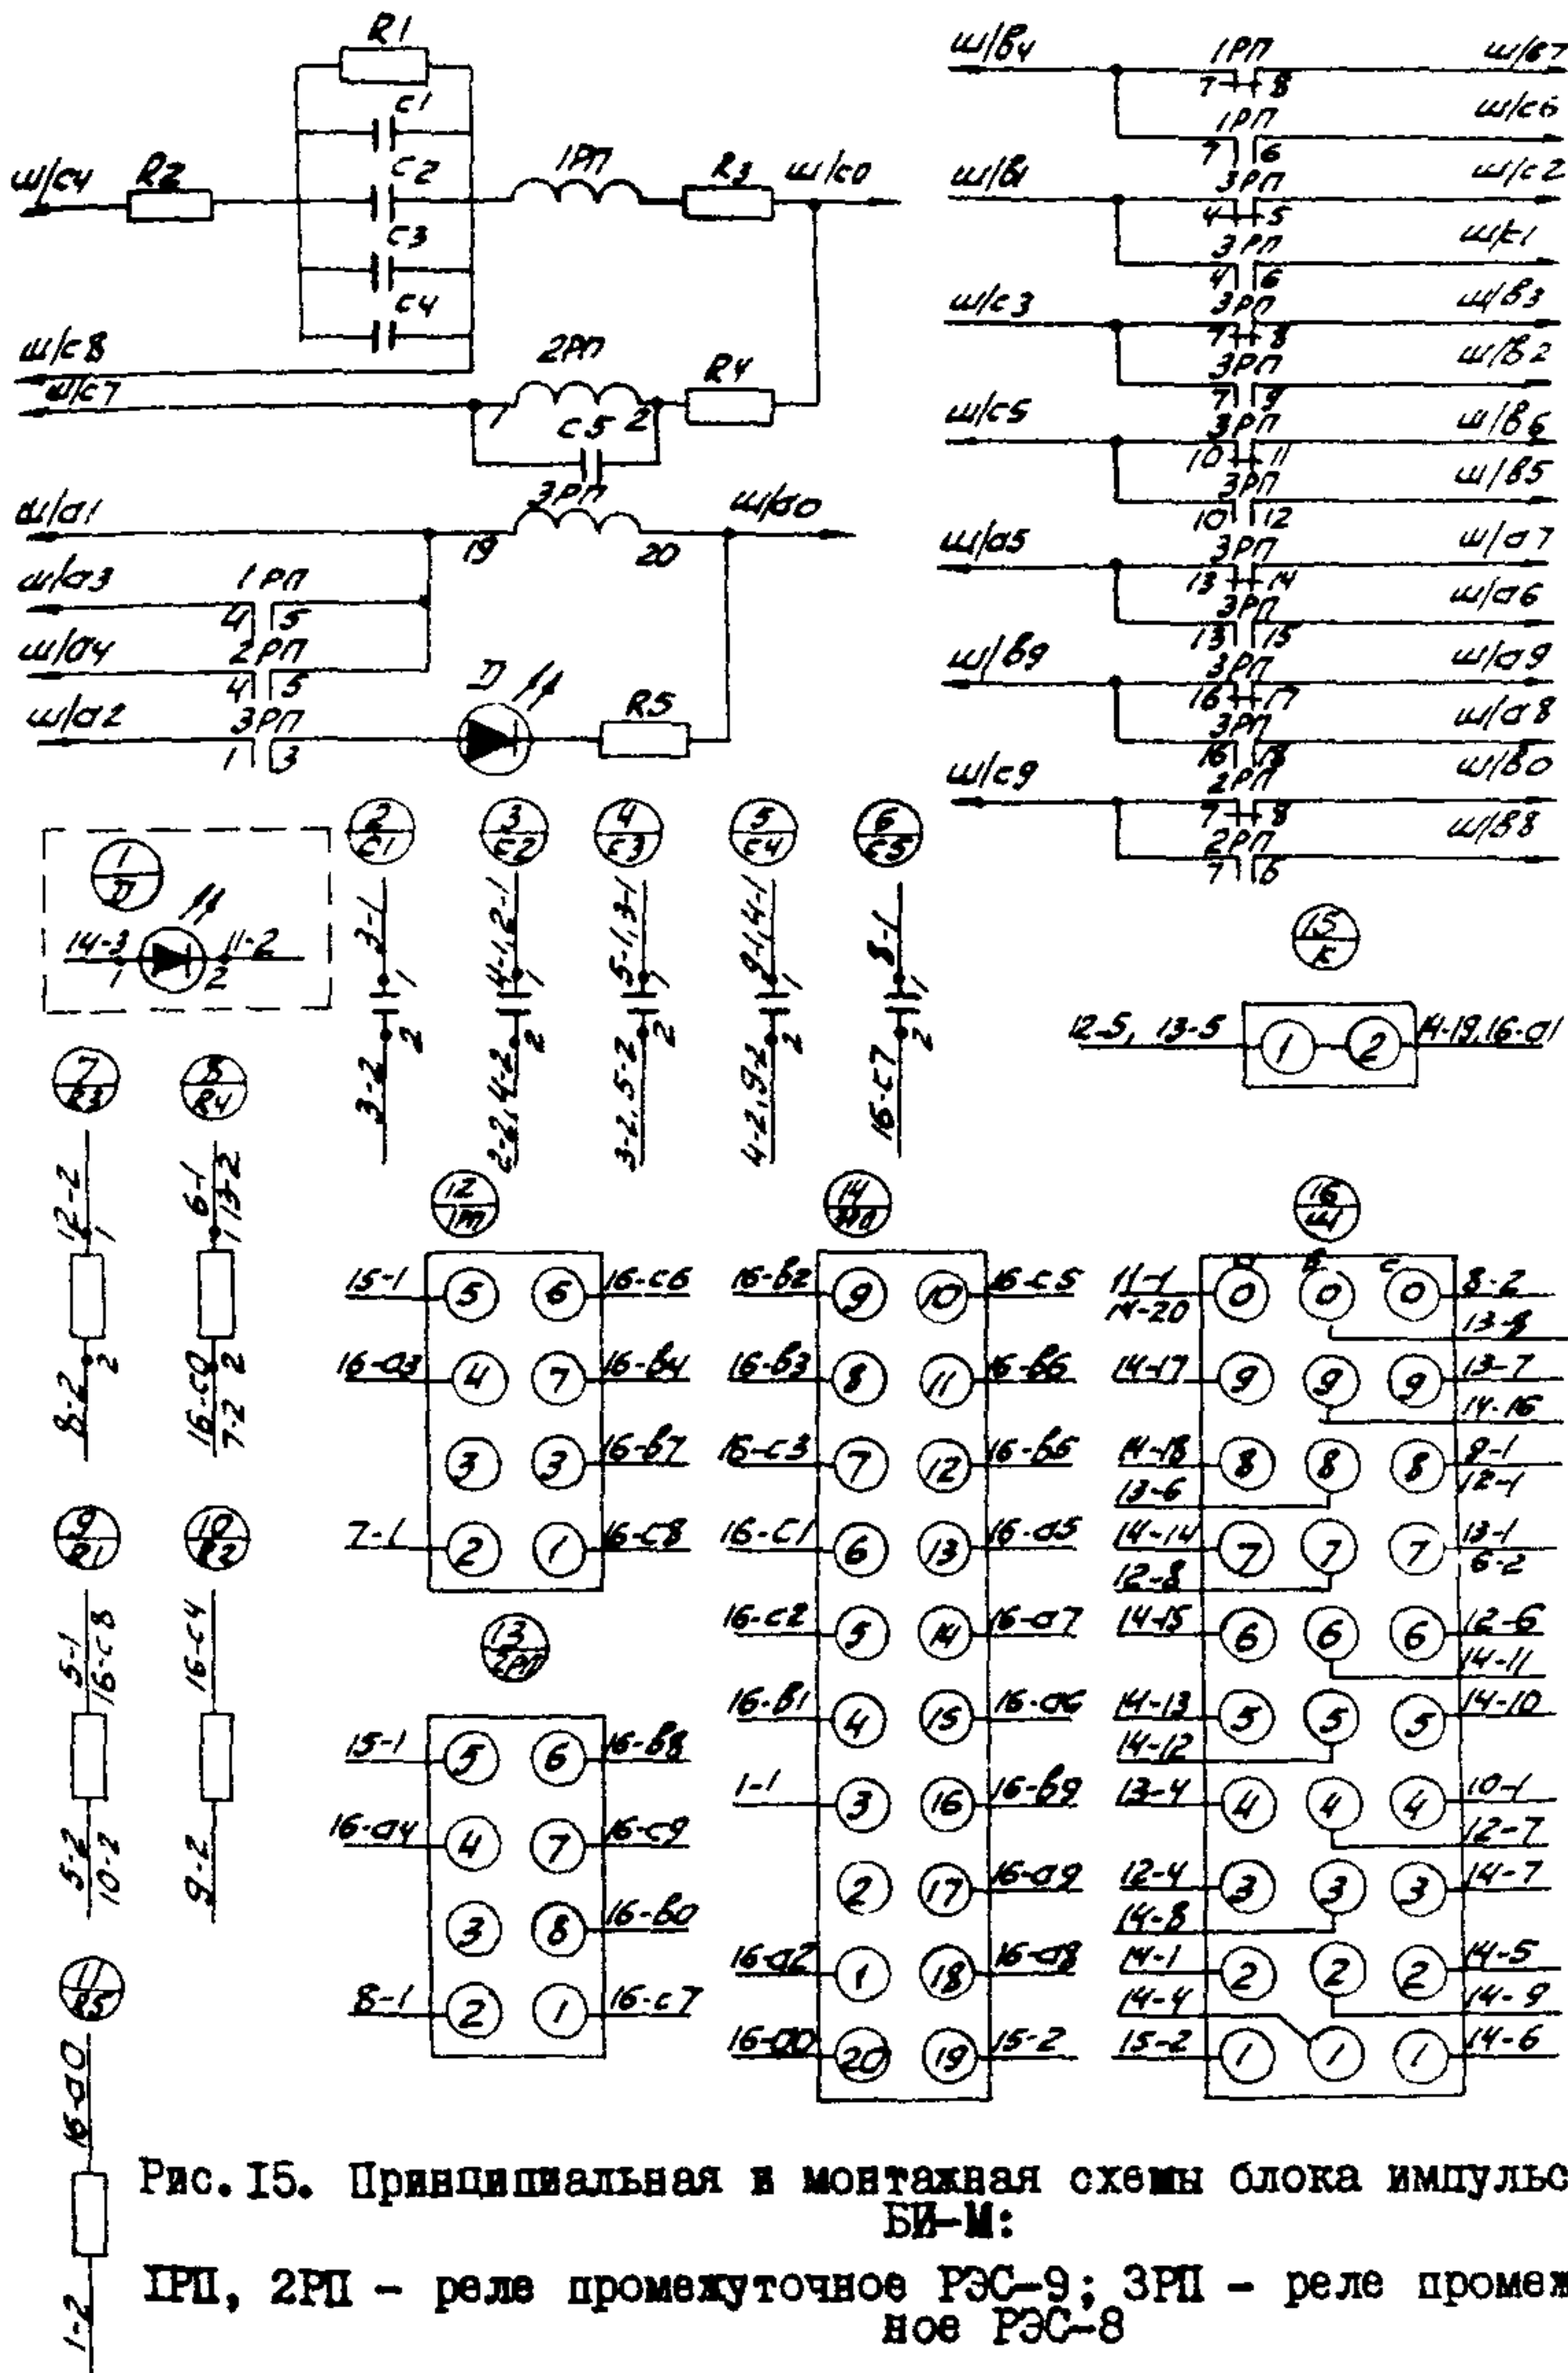 R1
C1
C2
C3
C4
ш/c4
R2
1РП
R3
ш/c0
ш/c8
ш/c7
2РП
R4
1
2
C5
3РП
ш/a1
19
20
ш/a0
ш/a3
1РП
4
5
ш/a4
2РП
4
5
ш/a2
3РП
1
3
D
R5
ш/в4
1РП
7
8
ш/в7
1РП
7
6
ш/c6
ш/в1
3РП
4
5
ш/c2
3РП
4
6
ш/c1
ш/c3
3РП
7
8
ш/в3
3РП
7
9
ш/в2
ш/c5
3РП
10
11
ш/в6
3РП
10
12
ш/в5
ш/a5
3РП
13
14
ш/a7
3РП
13
15
ш/a6
ш/в9
3РП
16
17
ш/a9
3РП
16
18
ш/a8
ш/c9
2РП
7
8
ш/в0
2РП
7
6
ш/в8
1
D
14-3
11-2
1
2
2
C1
3-1
1
2
3-2
3
C2
4-1, 2-1
1
2
2-2, 4-2
4
C3
5-1, 3-1
1
2
3-2, 5-2
5
C4
9-1, 4-1
1
2
4-2, 9-2
6
C5
8-1
1
2
16-c7
15
К
12-5, 13-5
1
2
14-19, 16-a1
7
R3
12-2
1
2
8-2
8
R4
6-1
13-2
1
2
16-c0
7-2
9
R1
5-1
16-c8
5-2
10-2
10
R2
16-c4
9-2
11
R5
16-a0
1-2
12
1РП
15-1 5 6 16-c6
16-a3 4 7 16-в4
3 3 16-в7
7-1 2 1 16-c8
13
2РП
15-1 5 6 16-в8
16-a4 4 7 16-c9
3 8 16-в0
8-1 2 1 16-c7
14
3РП
16-в2 9 10 16-c5
16-в3 8 11 16-в6
16-c3 7 12 16-в5
16-c1 6 13 16-a5
16-c2 5 14 16-a7
16-в1 4 15 16-a6
1-1 3 16 16-в9
2 17 16-a9
16-a2 1 18 16-a8
16-a0 20 19 15-2
16
ш
a в c
11-1 0 0 0 8-2
14-20
13-8
14-17 9 9 9 13-7
14-16
14-18 8 8 8 9-1
13-6
12-1
14-14 7 7 7 13-1
12-8
6-2
14-15 6 6 6 12-6
14-11
14-13 5 5 5 14-10
14-12
13-4 4 4 4 10-1
12-7
12-4 3 3 3 14-7
14-8
14-1 2 2 2 14-5
14-4
14-9
15-2 1 1 1 14-6
Рис. I5. Принципиальная и монтажная схемы блока импульс
БИ-М:
IРП, 2РП - реле промежуточное РЭС-9; 3РП - реле промеж
ное РЭС-8